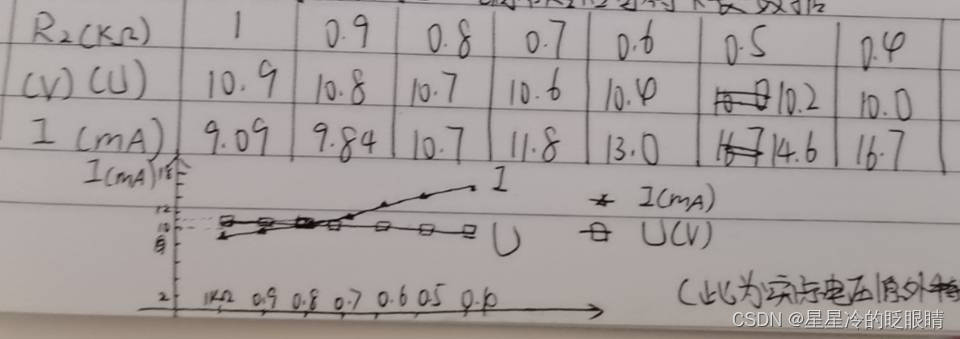 R2(KΩ) 1 0.9 0.8 0.7 0.6 0.5 0.4
(V)(U) 10.9 10.8 10.7 10.6 10.4 10.2 10.0
I(mA) 9.09 9.84 10.7 11.8 13.0 14.6 16.7
I(mA)
I
I(mA)
12
10
U
U(V)
2
1KΩ 0.9 0.8 0.7 0.6 0.5
(此为实际电压源外特
CSDN @星星冷的眨眼睛